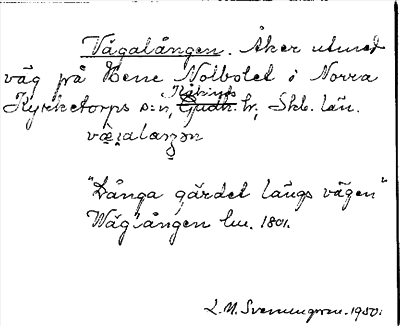 Vägalången. Åker utmed
väg på Hene Nolbolet i Norra
Kyrketorps s:n, Gudh. hr, Skb. län.
væ̣ɪalaŋən
"Långa gärdet längs vägen"
Wäglången lm. 1801.
L. M. Svenungsson. 1950.